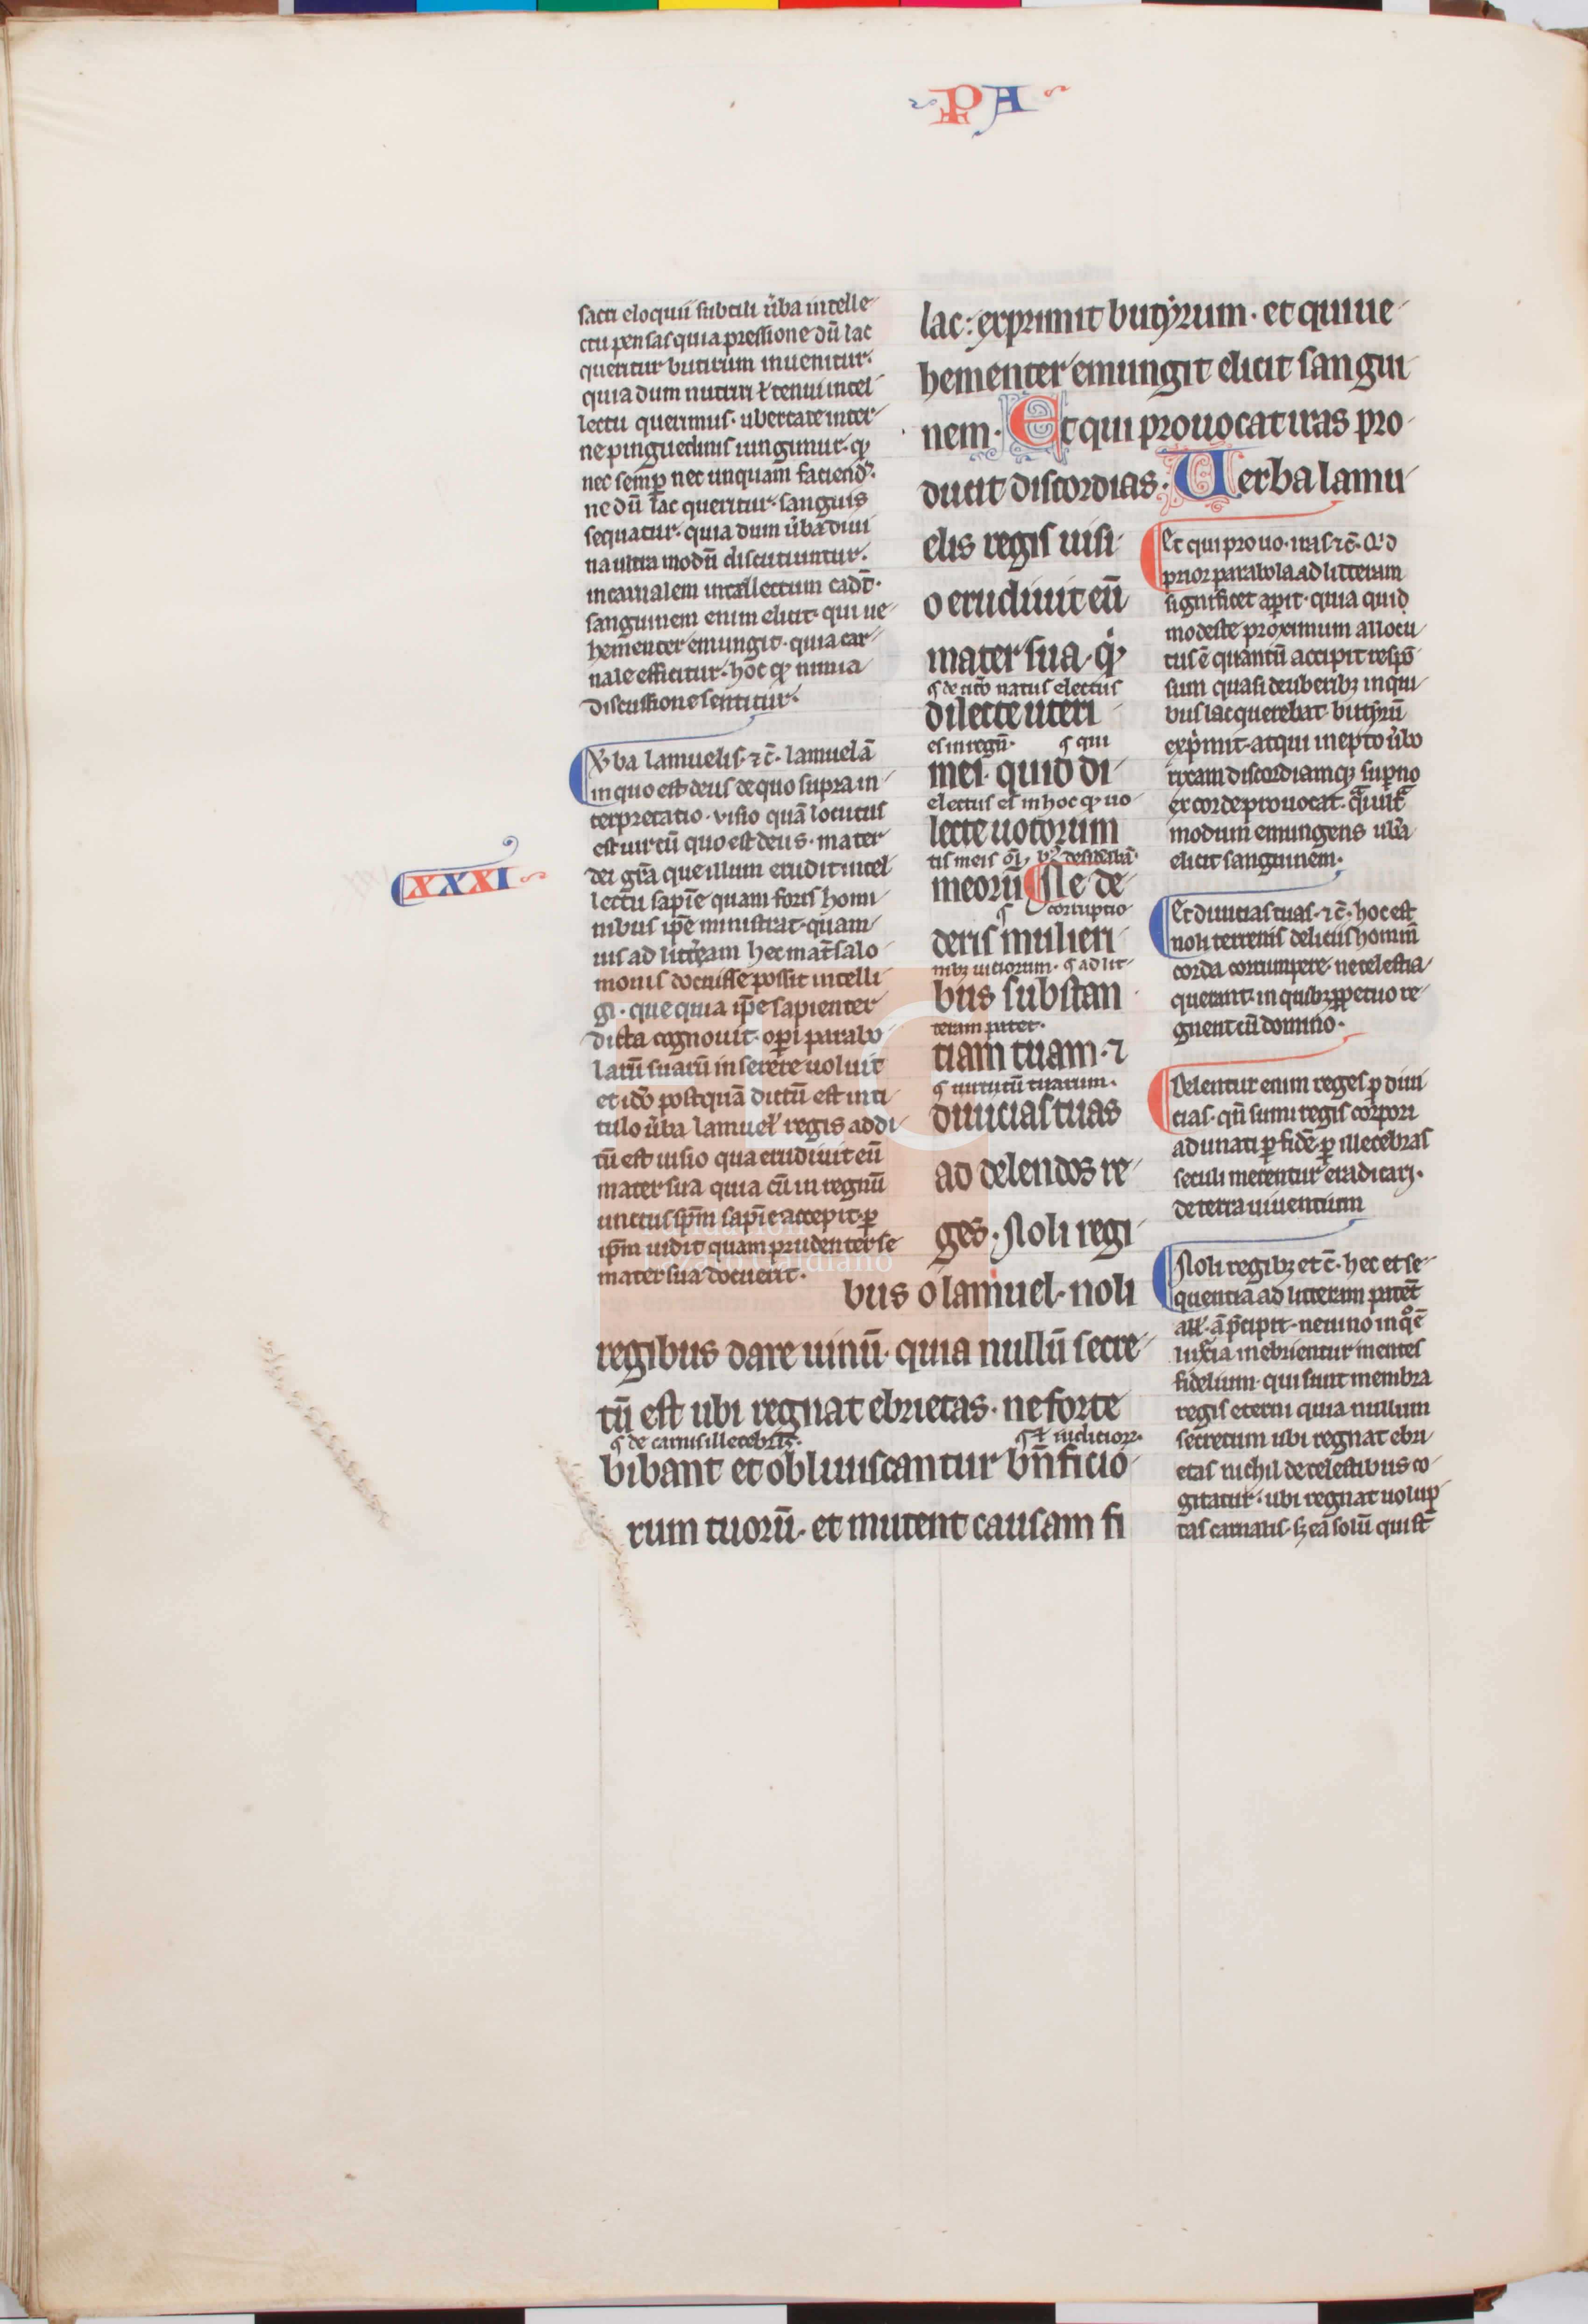 PA
sacri eloquii subtili ũba intelle
ctu pensas quia pressione dũ lac
queritur butirum inuenitur.
quia dum nutriri ⁊ tenui intel
lectu querimus. ubertate inter
ne pinguedinis iungimur. qđ
nec semꝑ nec unquam faciend᷒.
ne dũ lac queritur. sanguis
sequatur. quia dum ũba diui
na ultra modũ discutiuntur.
in carnalem intellectum cadt̄.
sanguinem enim elicit. qui ue
hementer emungit. quia car
nale efficitur. hoc qđ nimia
discussione sentitur.
Vba lamuelis. ⁊ c̄. lamuel ā
in quo est deus de quo supra in
terpretatio. visio quā locutus
est uir cũ quo est deus. mater
dei gr̄a que illum erudit intel
lectu sapīe quam foris homi
nibus ip̄e ministrat. quam
uis ad litteram hec mat̄ salo
monis docuisse possit intelli
gi. que quia ip̄e sapienter
dicta cognouit. oꝑi parabo
larũ suarũ inserere uoluit
et ido᷒ postquā dictũ est in ti
tulo ũba lamuel᷒ regis addi
tũ est uisio qua erudiuit eũ
mater sua quia cũ in regnũ
unctus sp̄m sapīe accepit. ꝑ
ip̄m uidit quam prudenter se
mater sua docuerit.
XXXI
lac: exprimit butyrum. et qui ue
hementer emungit elicit sangui
nem. Et qui prouocat iras pro
ducit discordias. Verba lamu
elis regis uisi
o erudiuit eũ
mater sua. qđ
ꝗ de ut̄o natus electus
dilecte uteri
es in regn̄. ꝗ qui
mei. quid di
electus es in hoc qđ uo
lecte uotorum
tis meis
meorũ Ne de
ꝗ corruptio
deris mulieri
nibꝫ uitiorum. ꝗ ad lit
bus substan
teram patet.
tiam tuam. ⁊
ꝗ uirtutũ tuarum.
diuicias tuas
ad delendos re
ges. Noli regi
bus o lamuel. noli
regibus dare uinũ. quia nullũ secre
tũ est ubi regnat ebrietas. ne forte
ꝗ de carnis illecebris.
bibant et obliuiscantur
rum tuorũ. et mutent causam fi
Et qui prouo. iras. ⁊ c̄. Qđ
prior parabola ad litteram
significet aꝑit. quia quid
modeste proximum allocu
tus ē quantũ accipit respō
sum quasi de uberibꝫ in qui
bus lac querebat. butyrũ
exp̄mit. atqui inepto ũbo
rixam discordiamqꝫ suꝑno
ex corde prouocat.
modum emungens ub̄a
elicit sanguinem.
Et diuitias tuas. ⁊ c̄. hoc est
noli terrenis deliciis hominũ
corda corrumpere. ne celestia
querant. in quibꝫ ꝑpetuo re
gnent cũ domino.
Delentur enim reges ꝑ diui
tias. qn̄ summi regis corpori
adunati ꝑ fidē. ꝑ illecebras
seculi merentur eradicari.
de terra uiuentium
Noli regibꝫ et c̄. hec et se
quentia ad litteram patēt
ne uino in qͦ ē
luxͥa inebrientur mentes
fidelium. qui sunt membra
regis eterni quia nullum
secretum ubi regnat ebri
etas nichil de celestibus co
gitatur. ubi regnat uolup
tas carnalis. sꝫ ea solũ que st̄
Fundación
Lázaro Galdiano